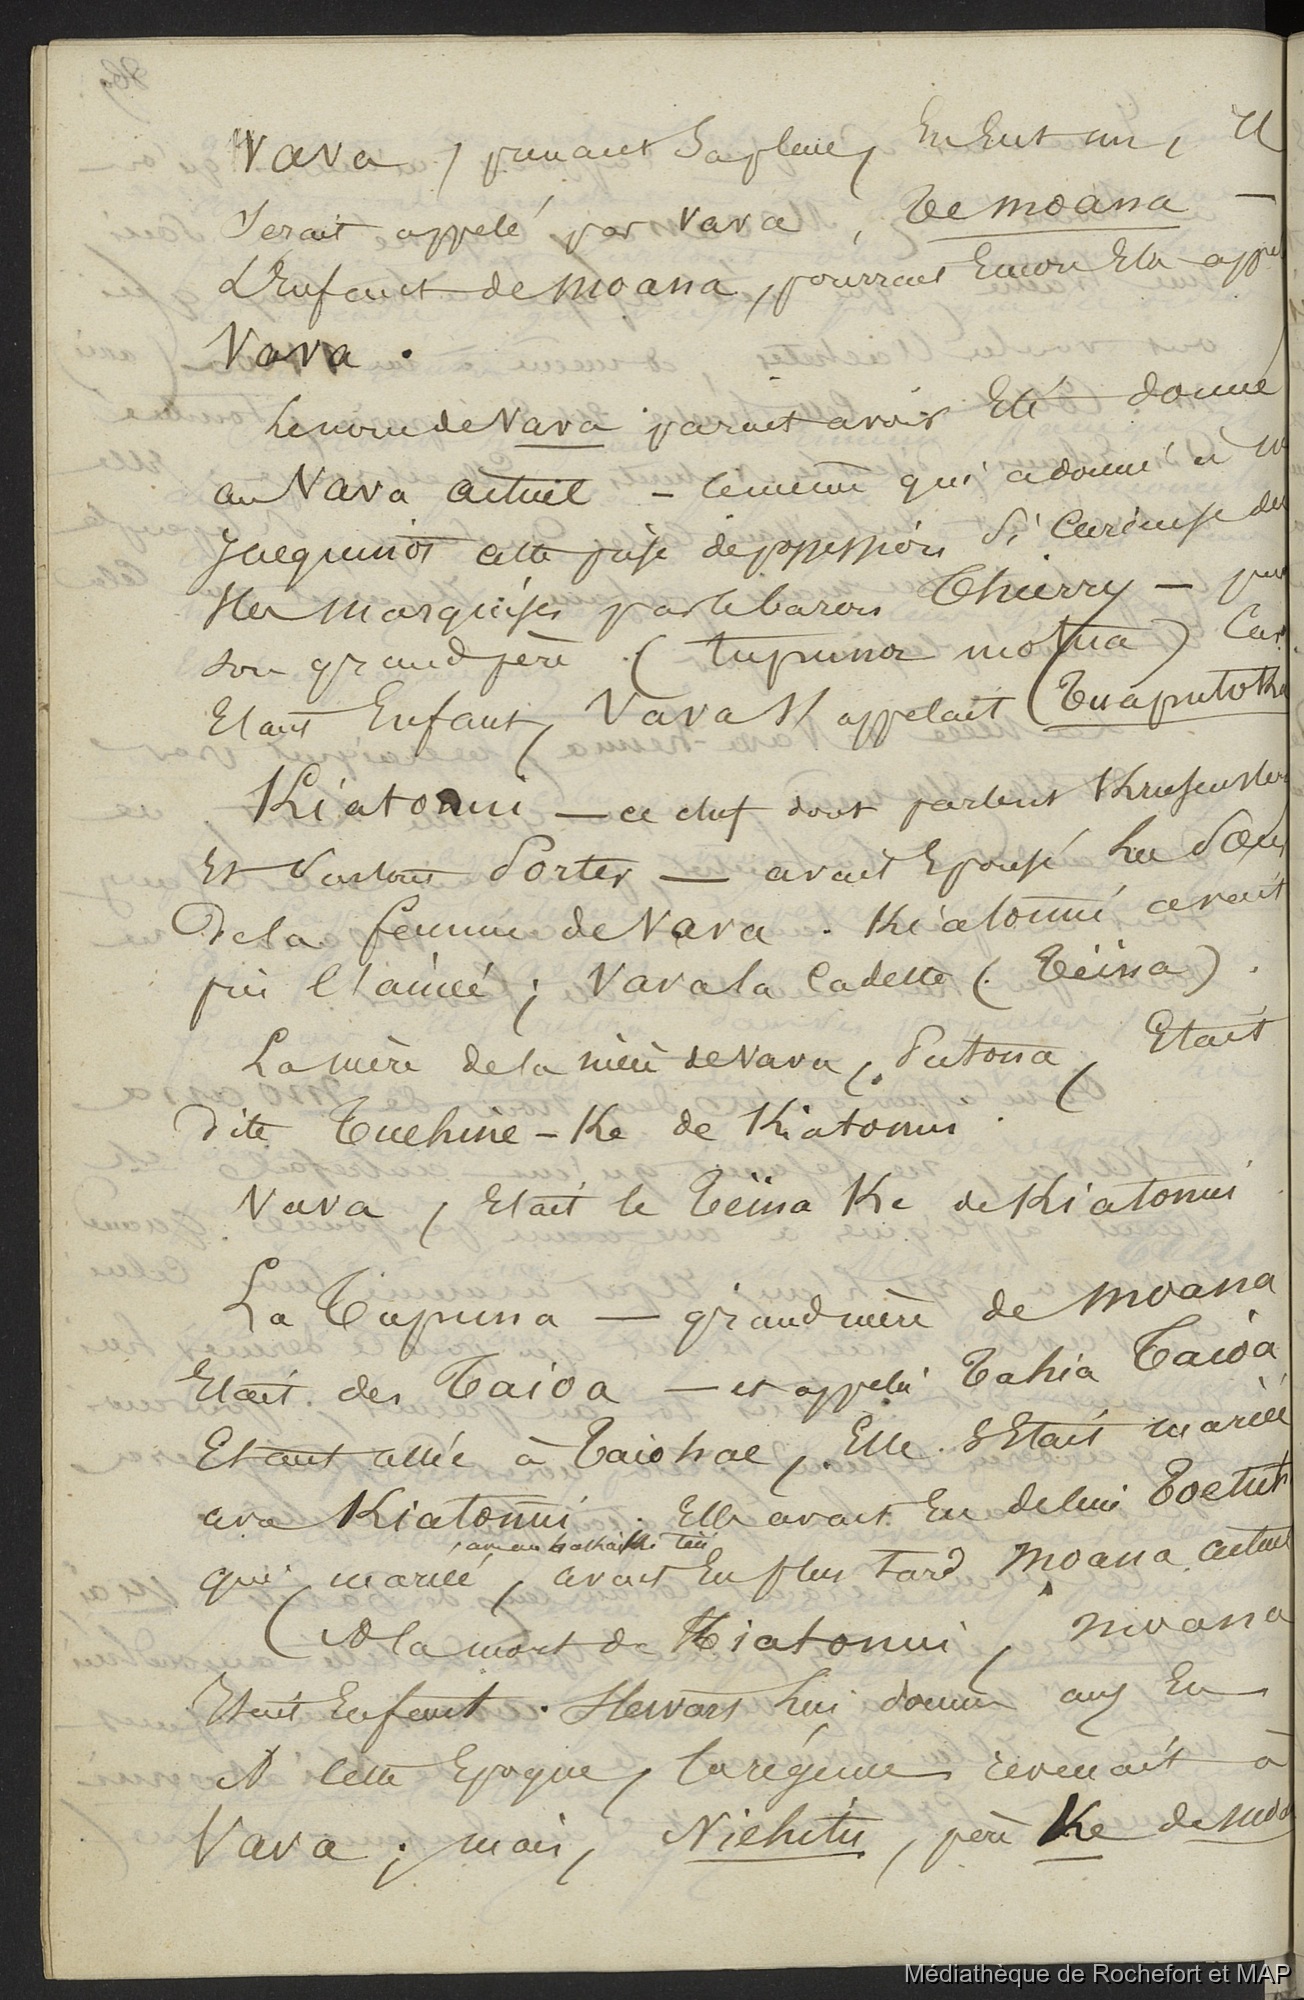 Vava, prenant Sa place, En Eut un, Il
Serait appelé par Vava, Te moana —
L'Enfant de moana, pourrait Encore Etre app
Vava.
Le nom de Vava parait avoir Eté donné
au Vava actuel — le même qui a donné à M
Jacquinot cette prise de possession Si Curieuse des
Iles marquises par le baron Thierry — par
son grand père (tupuna motua) Car
Etant Enfant, Vava S'appelait (Tuaputoka
Kiatonui — ce chef dont parlent Krusenster
Et Porter — avait Epousé La Sœur
De la femme de Vava. Kiatonui avait
pris l'ainée; Vava la Cadette (Teina).
La mère de la mère de Vava, Putona, Etait
Dite Tuehine-Ke de Kiatonui.
Vava, Etait le Teina Ke de Kiatonui
La Tupuna — grand mère de moana
Etait des Taioa — et appelé Tahia Taioa
Etant allée à Taiohae, Elle S'Etait mariée
avec Kiatonui. Elle avait Eu de lui Toetut
qui mariée, avait Eu plus tard moana actuel
(A la mort de Kiatonui, moana
Etait Enfant.
A cette Epoque, la régence revenait à
Vava; mais, Niehitu, père Ke de moa
Médiathèque de Rochefort et MAP